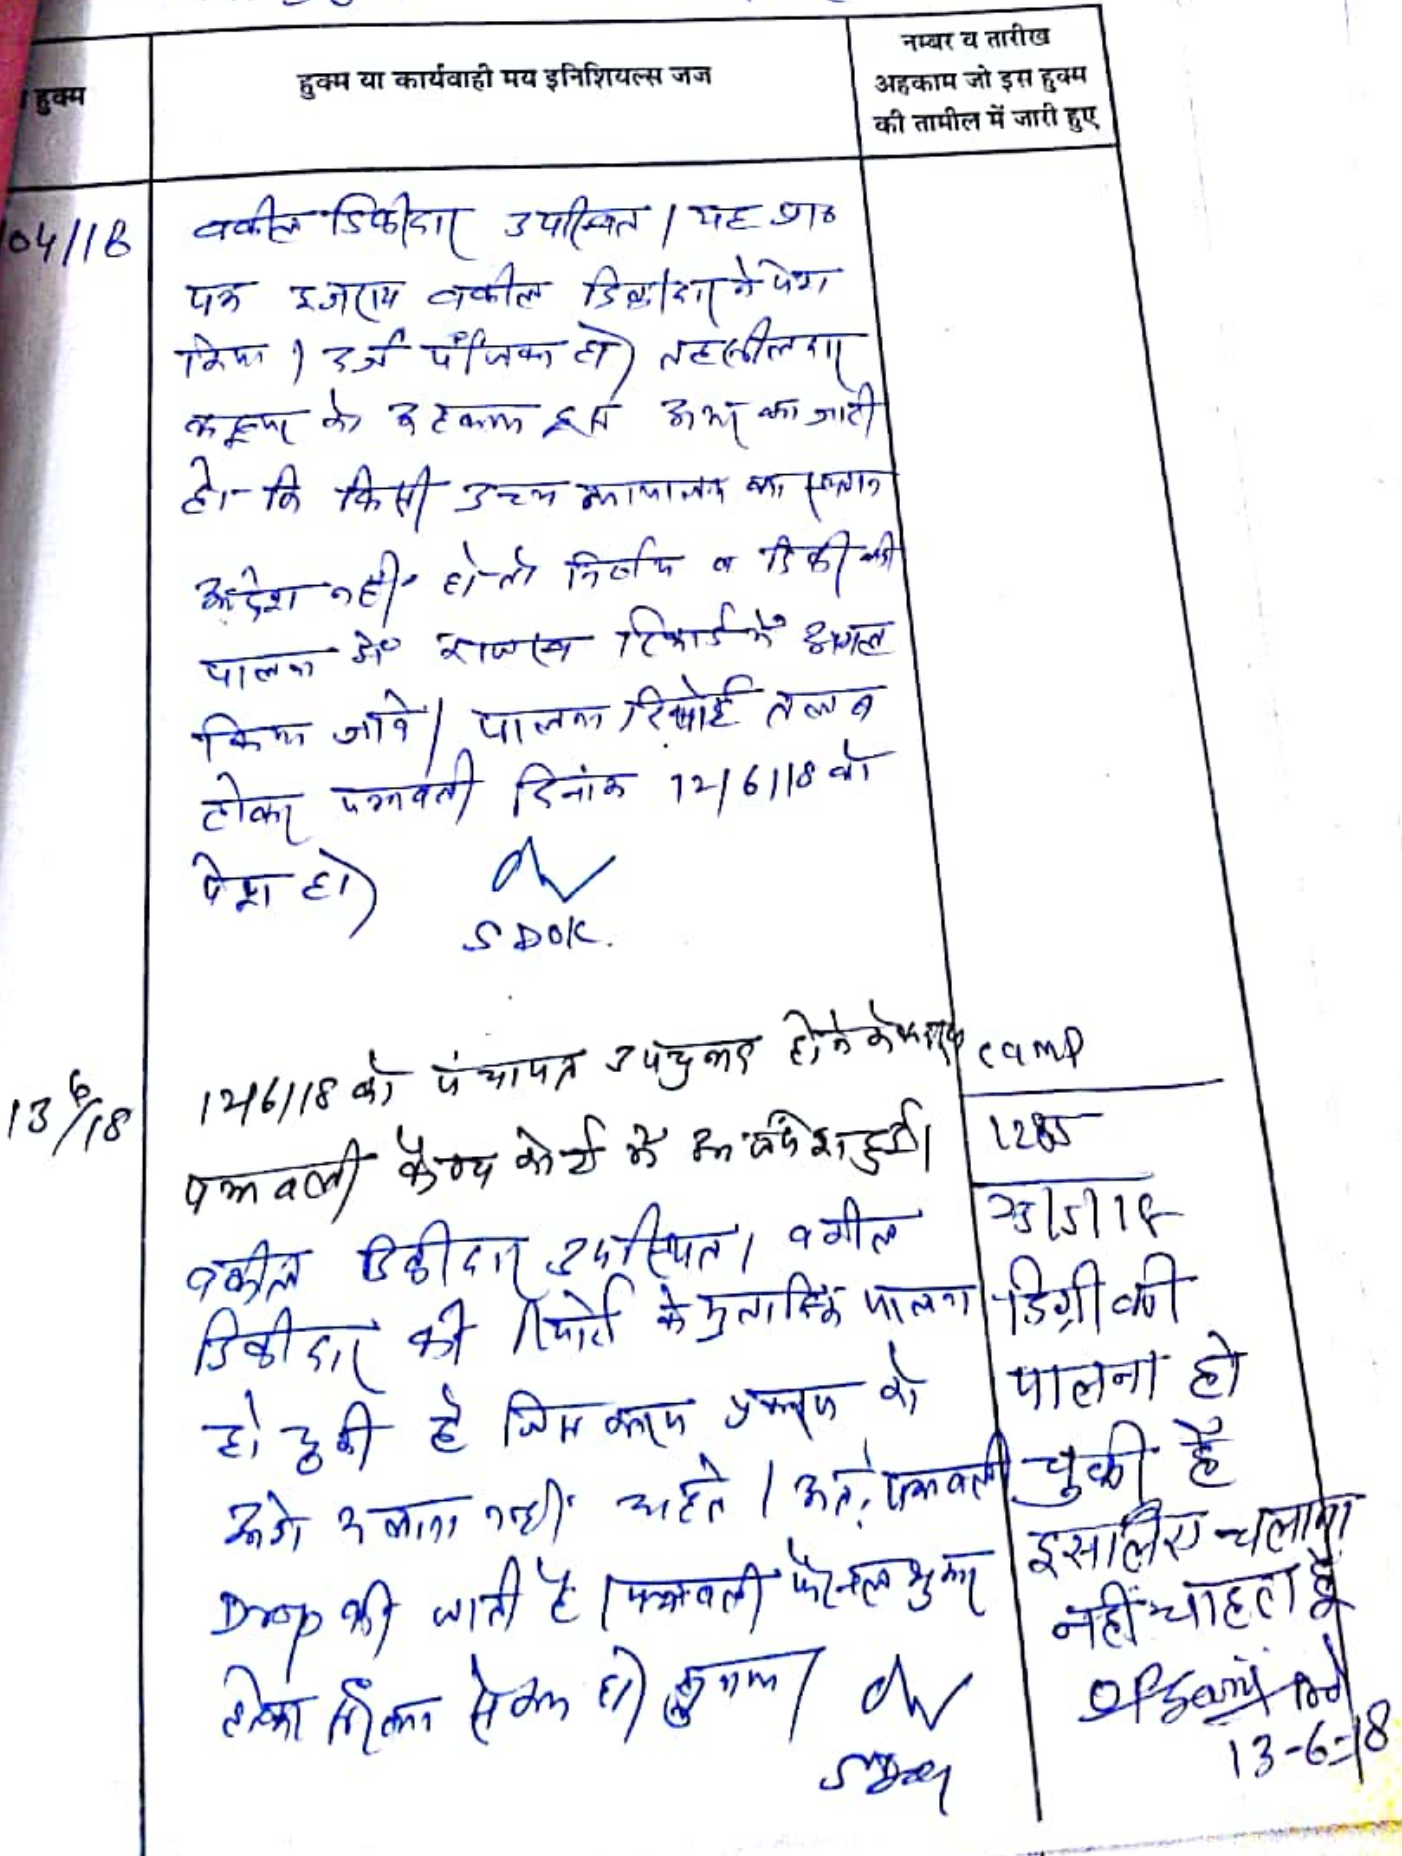 हुक्म
हुक्म या कार्यवाही मय इनिशियल्स जज
नम्बर व तारीख
अहकाम जो इस हुक्म
की तामील में जारी हुए
04/18
वकील डिक्रीदार उपस्थित । यह
पत्र इजराय वकील डिक्रीदार ने पेश
किया । दर्ज पंजिका हो । तहसीलदार
को इस की जाती
है। कि किसी उच्च न्यायालय का स्थगन
आदेश नही हो तो निर्णय व डिक्री की
पालना में राजस्व रिकार्ड में अमल
किया जावे । पालना रिपोर्ट तलब
होकर पत्रावली दिनांक 12/6/18 को
पेश हो ।
SDOK.
13/6/18
12/6/18 को पंचायत उपचुनाव होने के कारण
पत्रावली कैम्प कोर्ट में आज पेश हुई।
वकील डिक्रीदार उपस्थित । वकील
डिक्रीदार की रिपोर्ट के मुताबिक पालना
हो चुकी है जिस कारण प्रकरण को
आगे चलाना नही चाहते । अतः पत्रावली
Drop की जाती है । पत्रावली फैसल शुमार
होकर हो ।
camp
1285
25/5/18
डिग्री की
पालना हो
चुकी है
इसलिए चलाना
नहीं चाहता हूँ
13-6-18